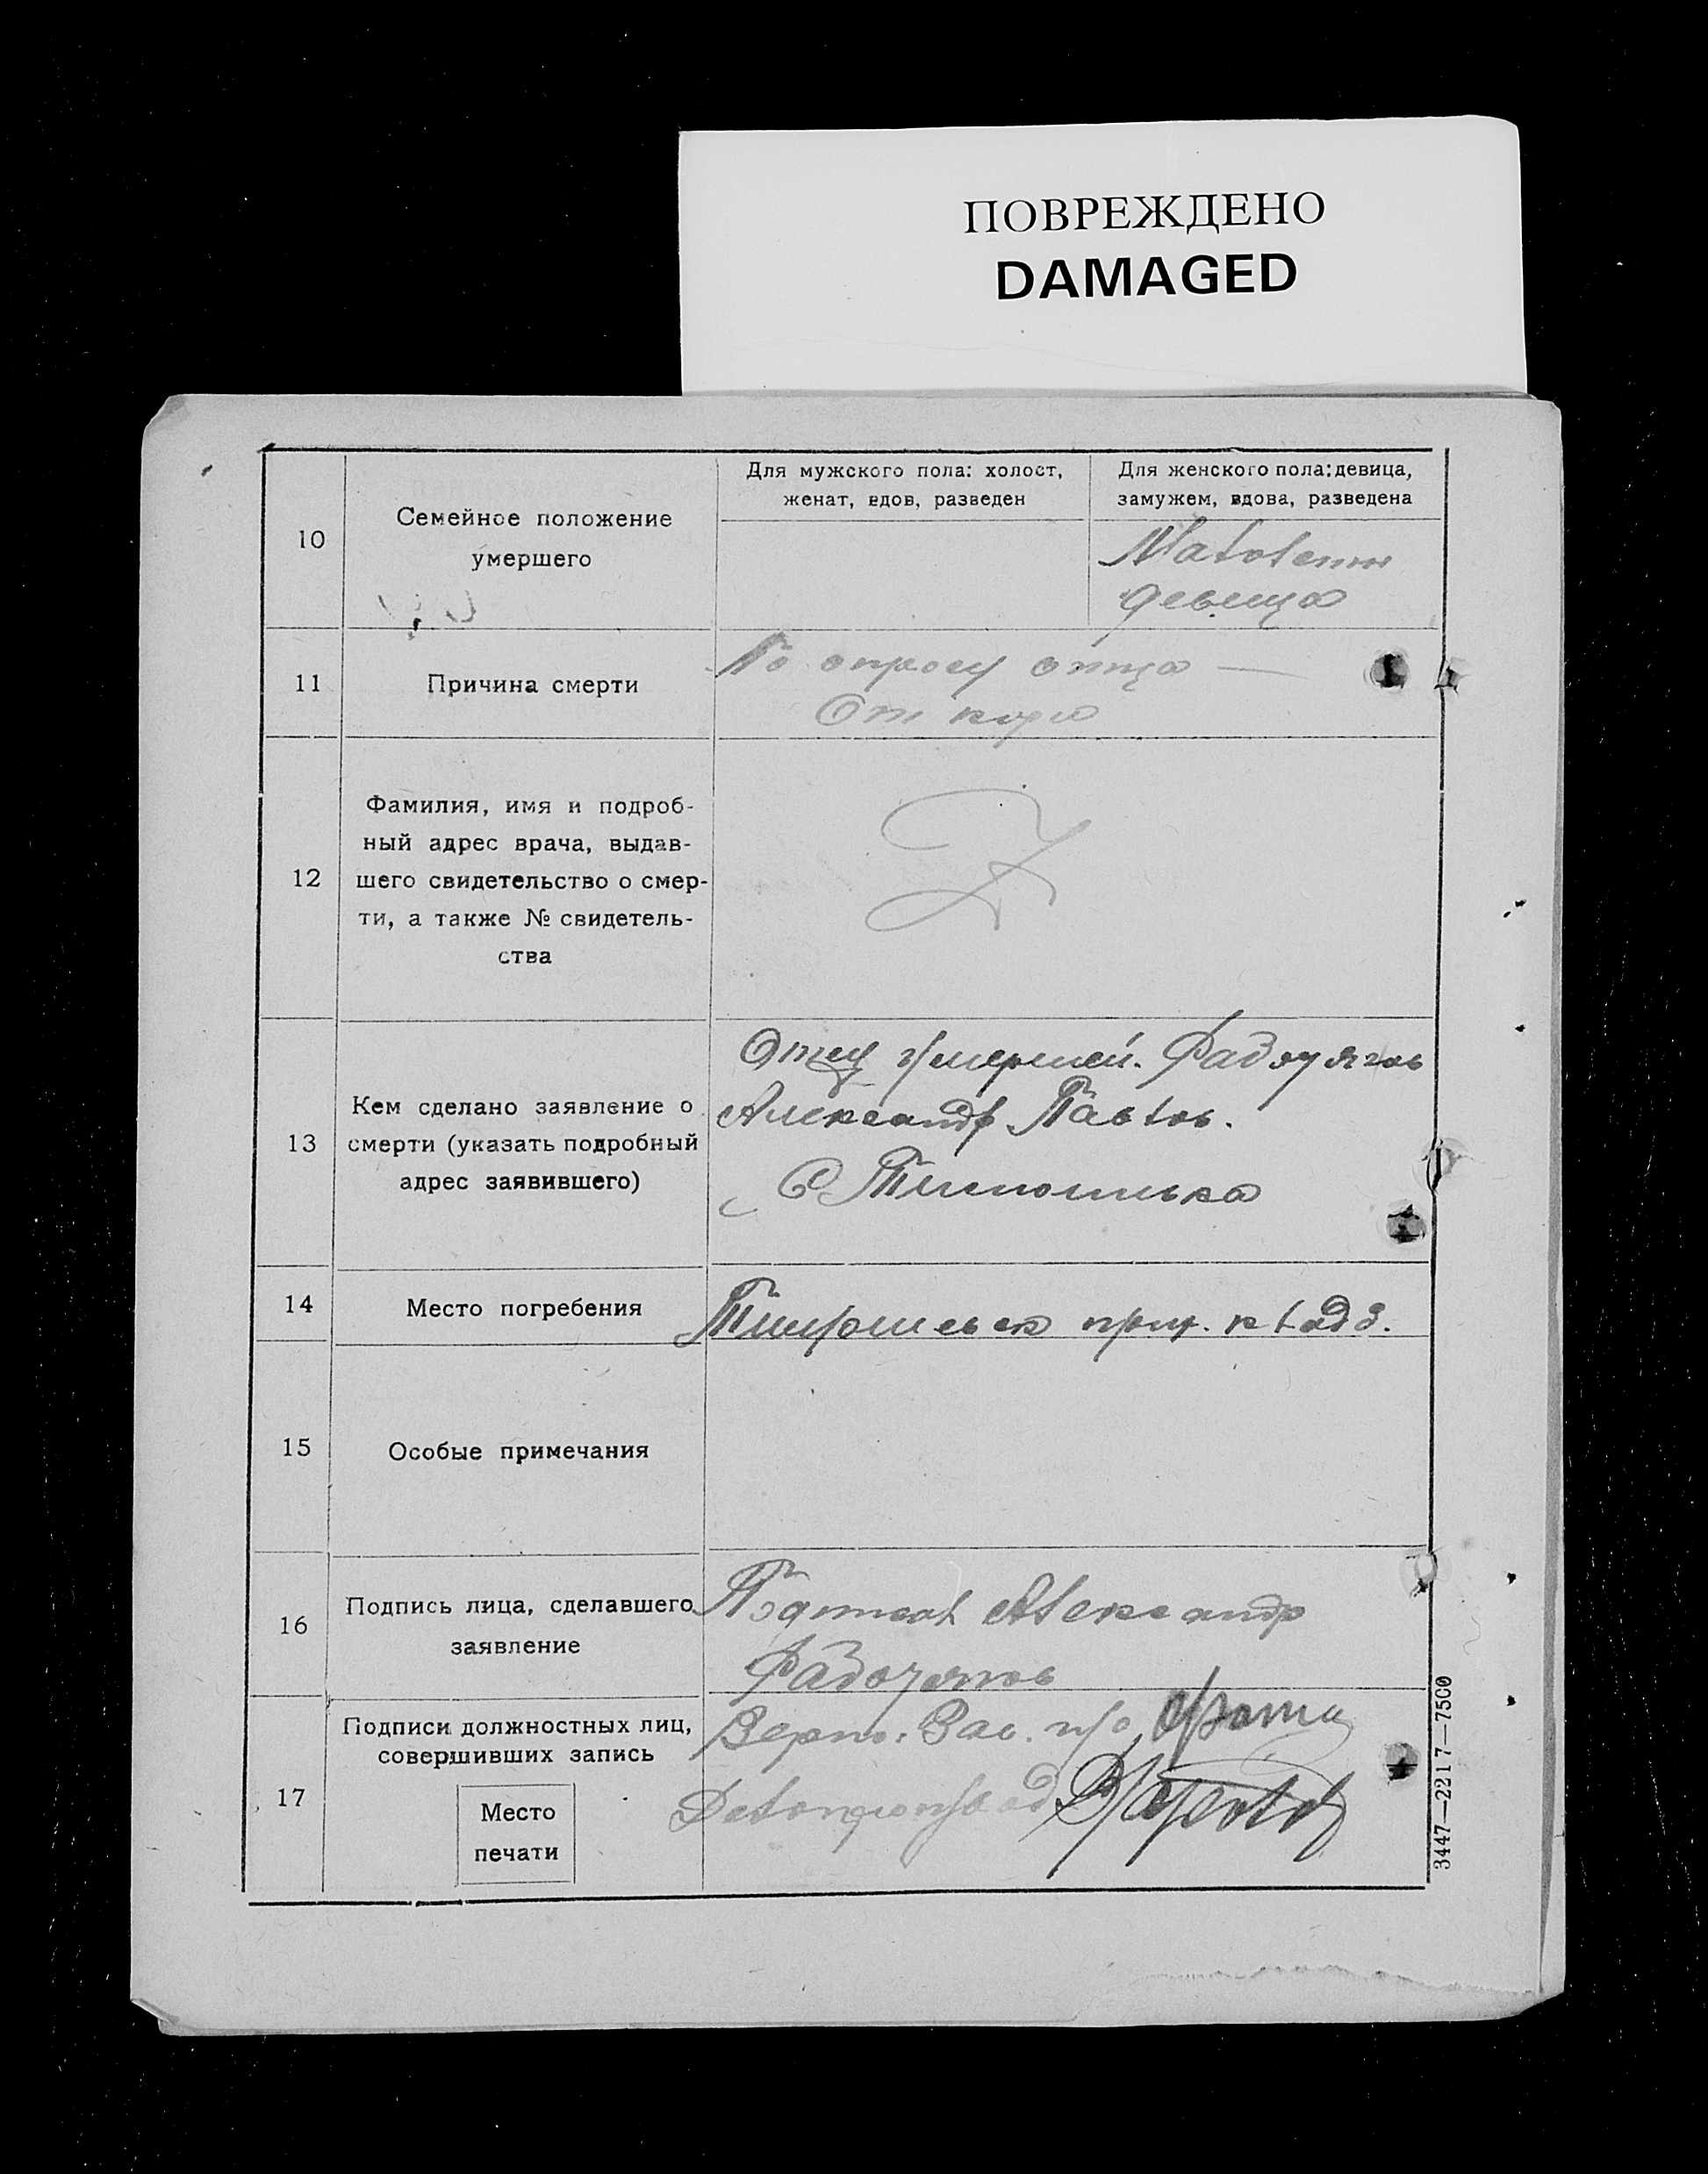 ПОВРЕЖДЕНО
DAMAGED
10
Семейное положение
умершего
Для мужского пола: холост,
женат, вдов, разведен
Для женского пола: девица,
замужем, вдова, разведена
девица
11
Причина смерти
По опросу отца —
От кори
12
Фамилия, имя и подроб-
ный адрес врача, выдав-
шего свидетельство о смер-
ти, а также № свидетель-
ства
13
Кем сделано заявление о
смерти (указать подробный
адрес заявившего)
Отец умершей.
Александр Павлов.
14
Место погребения
кладб.
15
Особые примечания
16
Подпись лица, сделавшего
заявление
Подписал Александр
17
Подписи должностных лиц,
совершивших запись
Место
печати
Верно:
Делопроизвод
3447—2217—7500